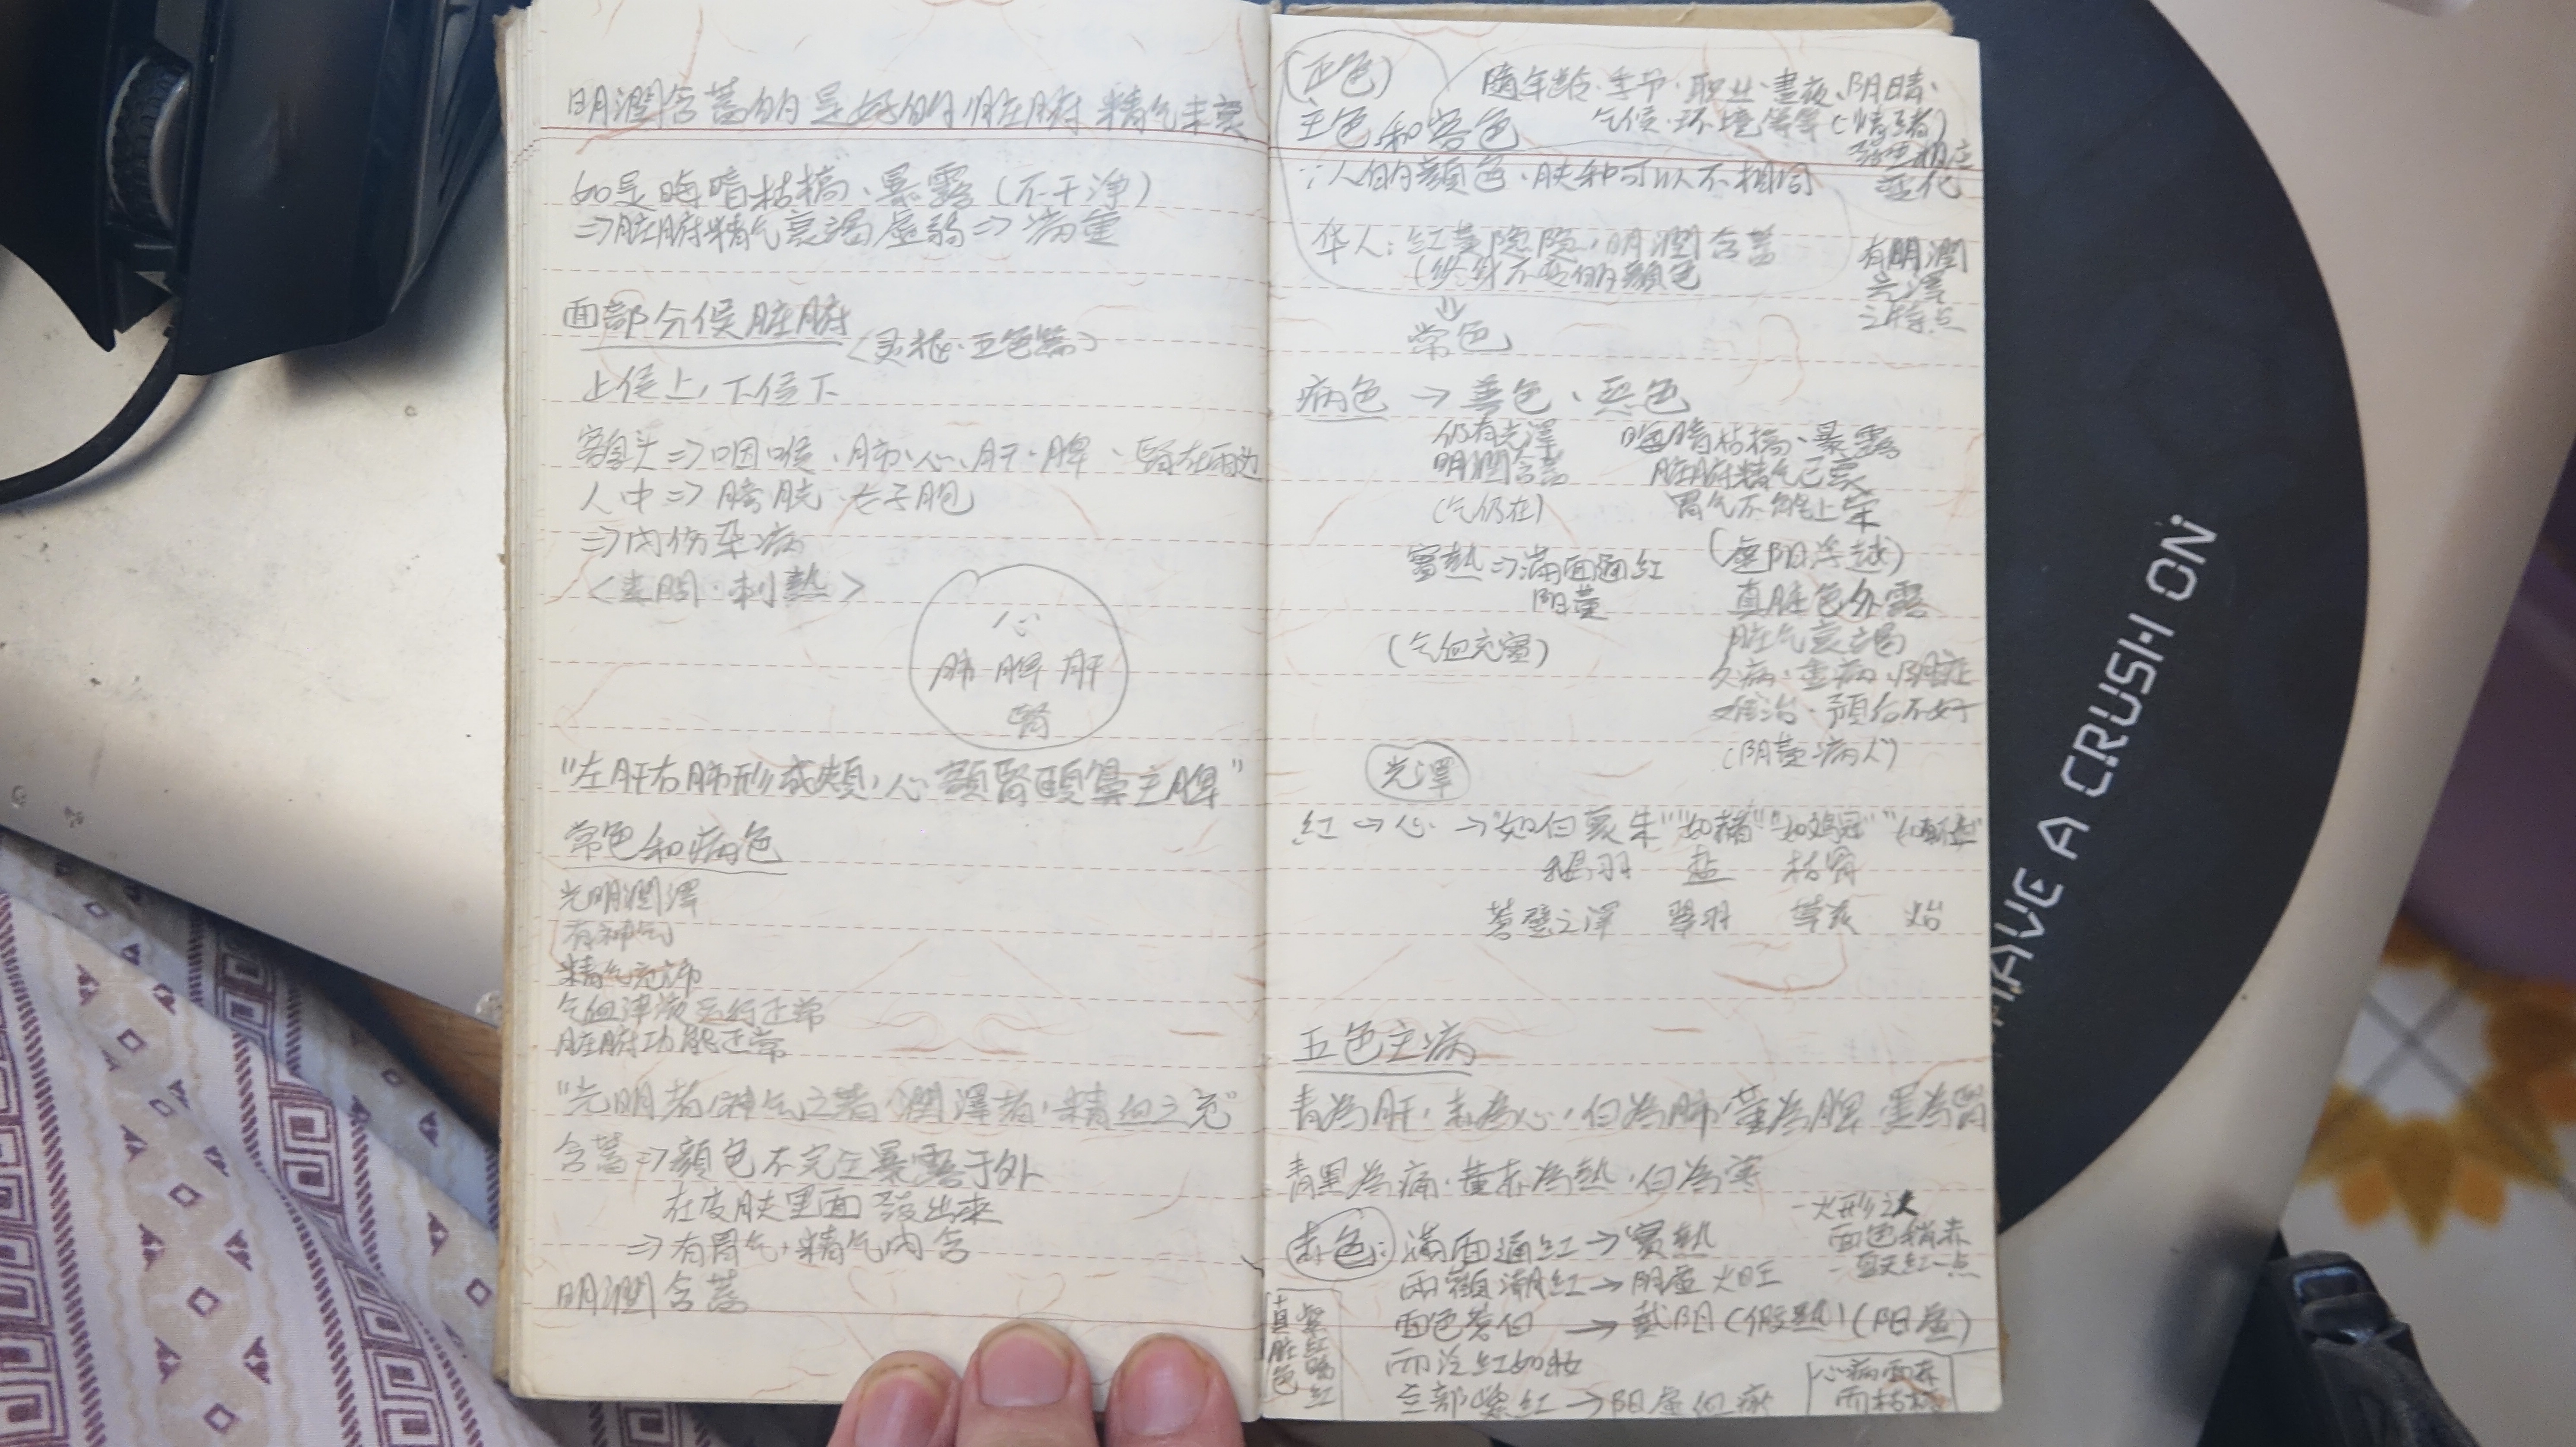 明潤含蓄的是好的脏腑精气未衰
如是晦暗枯槁、暴露(不干净)
⇒脏腑精气衰渴虚弱⇒病重
面部分候脏腑
<灵枢·五色篇>
上侯上,下侯下
⇒咽喉、肺、心、肝、脾、腎在兩边
人中⇒膀胱、子胞
⇒内伤杂病
<素問·刺熱>
心
肺 脾 肝
腎
"左肝右肺形成頰,心額腎頤鼻主脾"
常色和病色
光明潤澤
有神气
精气充沛
气血津液运行正常
脏腑功能正常
"光明者,神气之著,潤澤者,精血之充"
含蓄⇒顏色不完全暴露于外
在皮肤里面發出來
⇒有胃气,精气内含
明潤含蓄
(正色)
主色和客色
随年龄·季节·职业·晝夜、阴晴、
气侯·环境等等(情绪)
变化
:人的顏色、肤种可以不相同
华人:紅黄隐隐,明潤含蓄
(終身不变的顏色
⇓
常色
有明潤
光澤
之特点
病色→善色、恶色
仍有光澤
明潤含蓄
(气仍在)
晦暗枯槁、暴露
脏腑精气已衰
胃气不能上荣
(虚阳浮越)
實熱⇒滿面通紅
阳黄
(气血充實)
真脏色外露
脏气衰竭
久病、重病、阴症
难治·預后不好
(阴黄病人)
光澤
紅→心→"如白裹朱""如赭""如鸡冠"
鵝羽 盐 枯骨
苍璧之澤 翠羽 草茲 炲
五色主病
青為肝,赤為心,白為肺,黄為脾,黑為腎
青黑為痛,黄赤為熱,白為寒
赤色: 滿面通紅→實熱
兩顴潮紅→阴虚火旺
面色苍白→戴阳(假熱)(阳虚)
而泛紅如妝
-火形之人
面色稍赤
-夏天紅一点
真脏色
紫紅暗紅
心病面赤
而枯槁